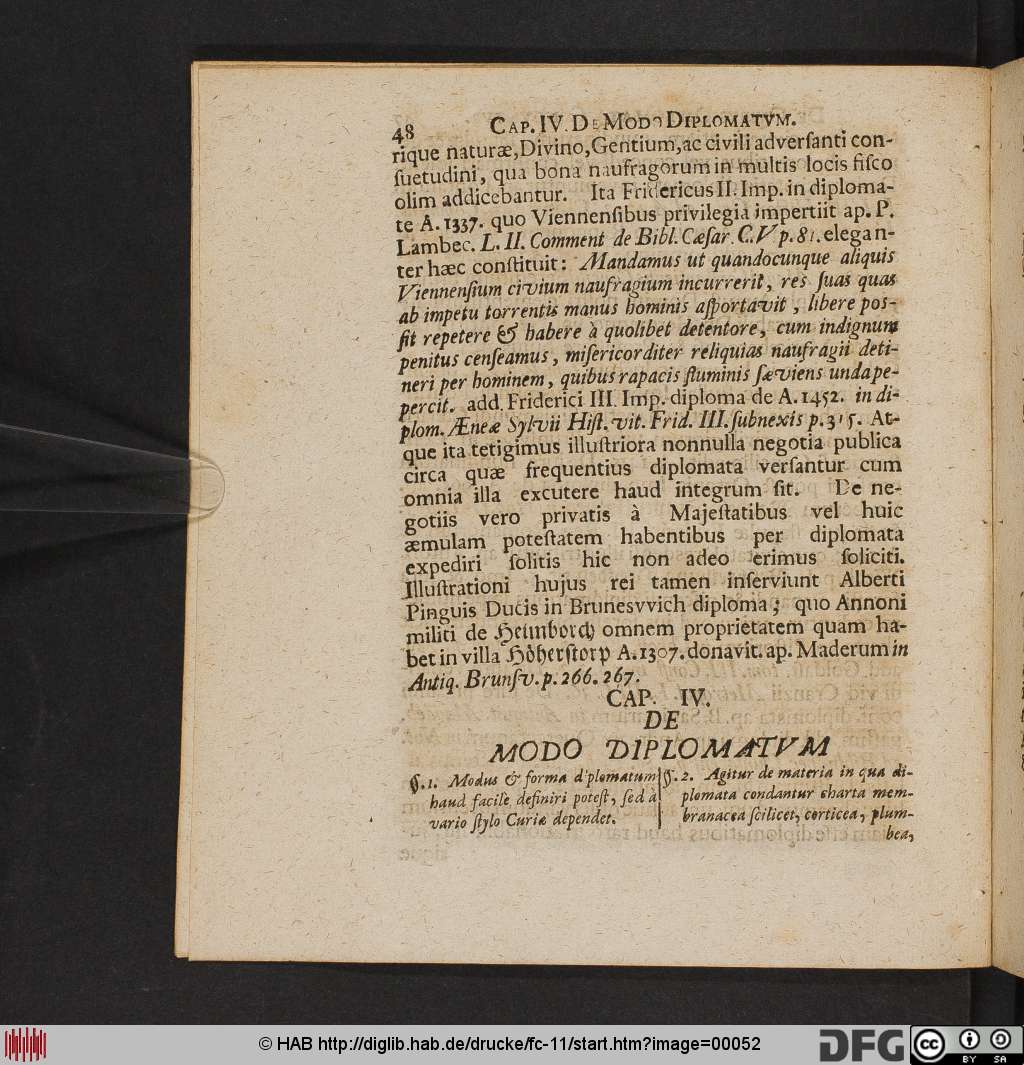 48 CAP. IV. DE MODO DIPLOMATVM.
rique naturæ, Divino, Gentium, ac civili adversanti con-
suetudini, qua bona naufragorum in multis locis fisco
olim addicebantur. Ita Fridericus II. Imp. in diploma-
te A. 1337. quo Viennensibus privilegia impertiit ap. P.
Lambec. L. II. Comment de Bibl. Cæsar. C. V p. 81. elegan-
ter hæc constituit: Mandamus ut quandocunque aliquis
Viennensium civium naufragium incurrerit, res suas quas
ab impetu torrentis manus hominis asportavit, libere pos-
sit repetere & habere à quolibet detentore, cum indignum
penitus censeamus, misericorditer reliquias naufragii deti-
neri per hominem, quibus rapacis fluminis sæviens unda pe-
percit. add. Friderici III. Imp. diploma de A. 1452. in di-
plom. Æneæ Sylvii Hist. vit. Frid. III. subnexis p. 315. At-
que ita tetigimus illustriora nonnulla negotia publica
circa quæ frequentius diplomata versantur cum
omnia illa excutere haud integrum sit. De ne-
gotiis vero privatis à Majestatibus vel huic
æmulam potestatem habentibus per diplomata
expediri solitis hic non adeo erimus soliciti.
Illustrationi hujus rei tamen inserviunt Alberti
Pinguis Ducis in Brunesvvich diploma; quo Annoni
militi de Heimborch omnem proprietatem quam ha-
bet in villa Höherstorp A. 1307. donavit. ap. Maderum in
Antiq. Brunsv. p. 266. 267.
CAP. IV.
DE
MODO DIPLOMATVM
§. 1. Modus & forma diplomatum
haud facile definiri potest, sed à
vario stylo Curiæ dependet.
§. 2. Agitur de materia in qua di-
plomata condantur charta mem-
branacea scilicet, corticea, plum-
bea,
© HAB http://diglib.hab.de/drucke/fc-11/start.htm?image=00052
DFG
cc BY SA